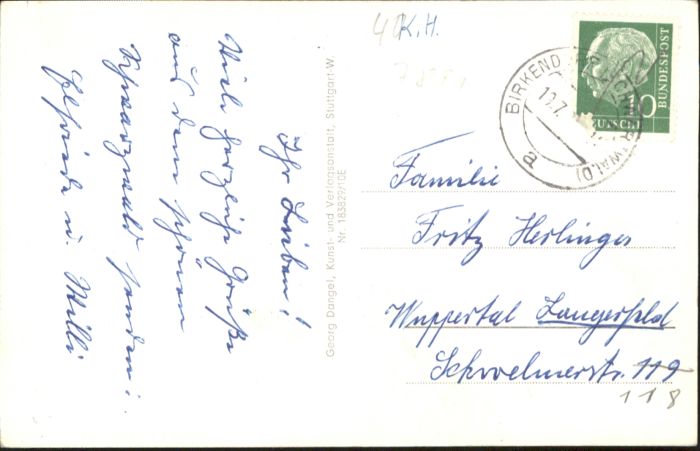 Ihr Lieben!
Viele herzliche Grüße
aus dem schönen
Schwarzwald senden:
Elfriede u. Willi
Georg Dangel, Kunst- und Verlagsanstalt, Stuttgart-W.
Nr. 183829/10E
K.H.
BIRKEND
WALD)
10.7.
a
10
BUNDESPOST
Familie
Fritz Herlinger
Wuppertal Langerfeld
Schwelmerstr. 119
118